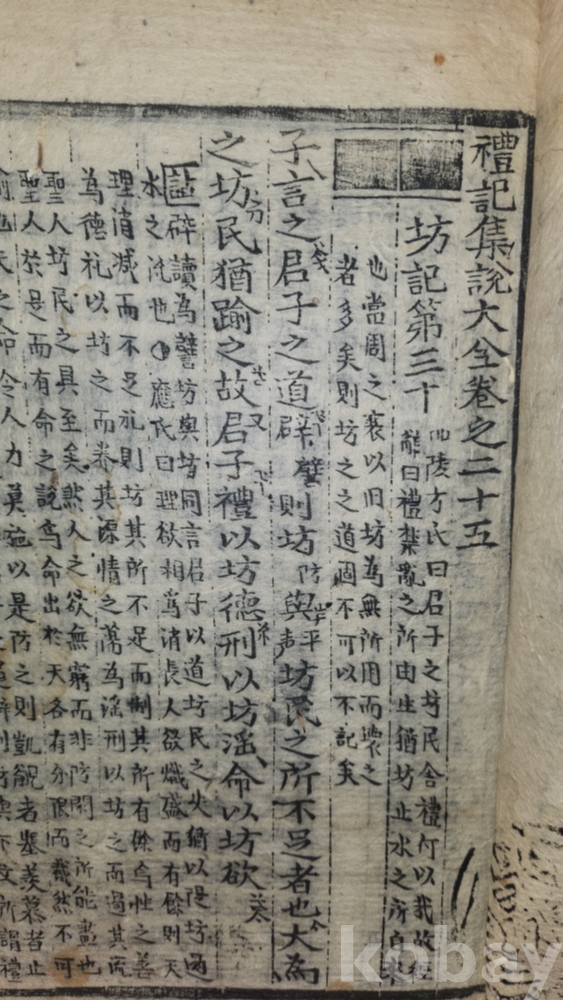 禮記集說大全卷之二十五
坊記第三十
陵方氏曰君子之坊民舍禮何以哉故經
解曰禮禁亂之所由生猶坊止水之所自來
也當周之衰以旧坊為無所用而壞之
者多矣則坊之之道固不可以不記矣
子言之君子之道辟譬則坊防與平聲坊民之所不足者也大為
之坊民猶踰之故君子禮以坊德刑以坊淫命以坊欲
註辟讀為譬坊與防同言君子以道坊民之失猶以隄坊遏
水之流也應氏曰理欲相為消長人欲熾盛而有餘則天
理消滅而不足礼則坊其所不足而制其所有餘為性之善
為德礼以坊之而養其源情之蕩為淫刑以坊之而遏其流
聖人坊民之具至矣然人之欲無窮而非防閑之所能盡也
聖人於是而有命之說焉命出於天各有分限而截然不可
之命令人力莫施以是防之則凱覦者塞羨慕者止
kobay